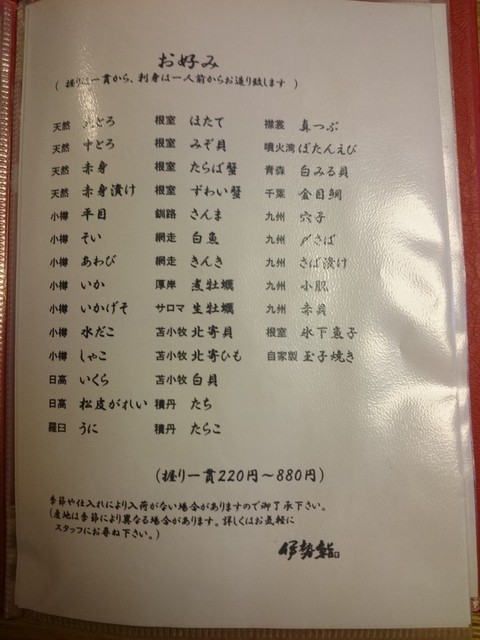 お好み
( 握りは一貫から、刺身は一人前からお造り致します )
天然 大とろ 根室 ほたて 襟裳 真つぶ
天然 中とろ 根室 みぞ貝 噴火湾 ぼたんえび
天然 赤身 根室 たらば蟹 青森 白みる貝
天然 赤身漬け 根室 ずわい蟹 千葉 金目鯛
小樽 平目 釧路 さんま 九州 穴子
小樽 そい 網走 白魚 九州 〆さば
小樽 あわび 網走 きんき 九州 さば漬け
小樽 いか 厚岸 煮牡蠣 九州 小肌
小樽 いかげそ サロマ 生牡蠣 九州 赤貝
小樽 水だこ 苫小牧 北寄貝 根室 氷下魚子
小樽 しゃこ 苫小牧 北寄ひも 自家製 玉子焼き
日高 いくら 苫小牧 白貝
日高 松皮がれい 積丹 たち
羅臼 うに 積丹 たらこ
(握り一貫220円～880円)
季節や仕入れにより入荷がない場合がありますので御了承下さい。
(産地は季節により異なる場合があります。詳しくはお気軽に
スタッフにお尋ね下さい。)
伊勢鮨